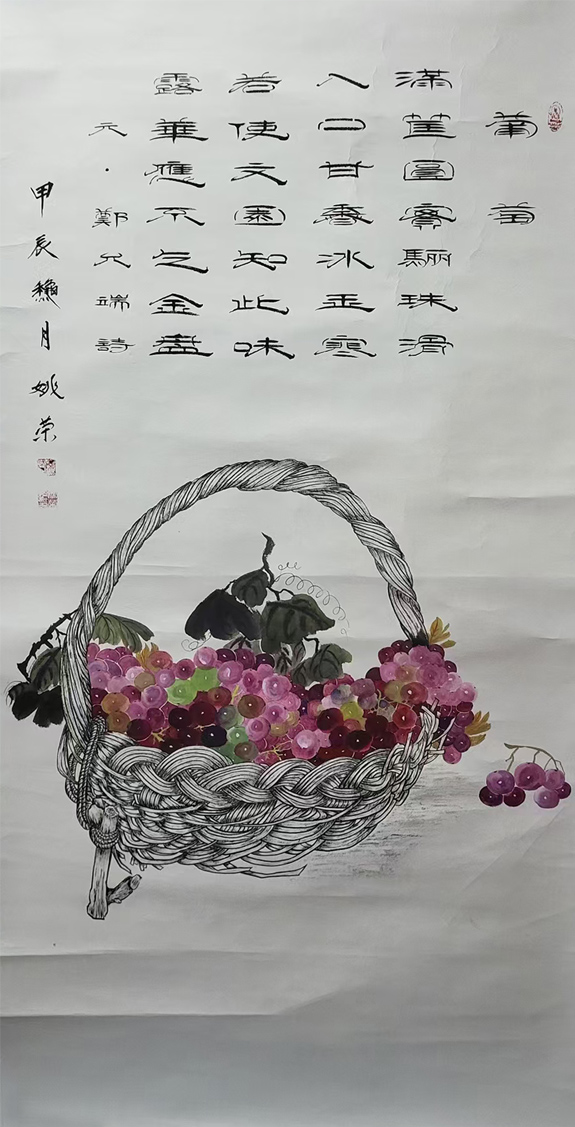 葡萄
滿筐圓實驪珠滑
入口甘香冰玉寒
若使文園知此味
露華應不乞金盤
元·鄭允端詩
甲辰龝月姚荣